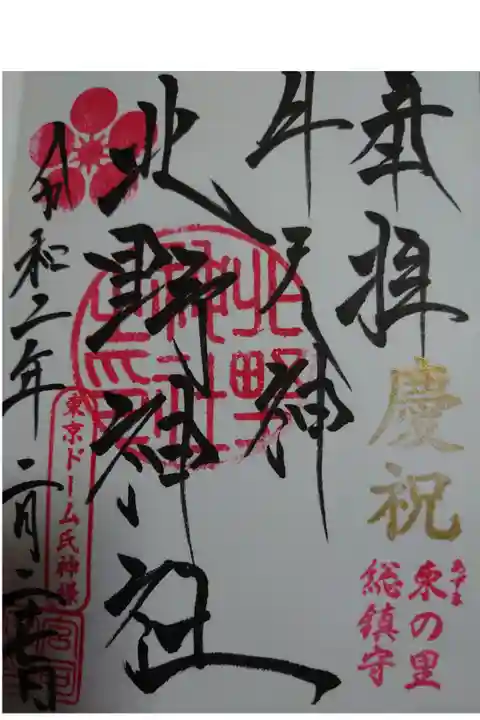 奉拝
慶祝
あずま
東の里
総鎮守
牛天神
北野神社
東京ドーム氏神様
令和二年二月二十七日